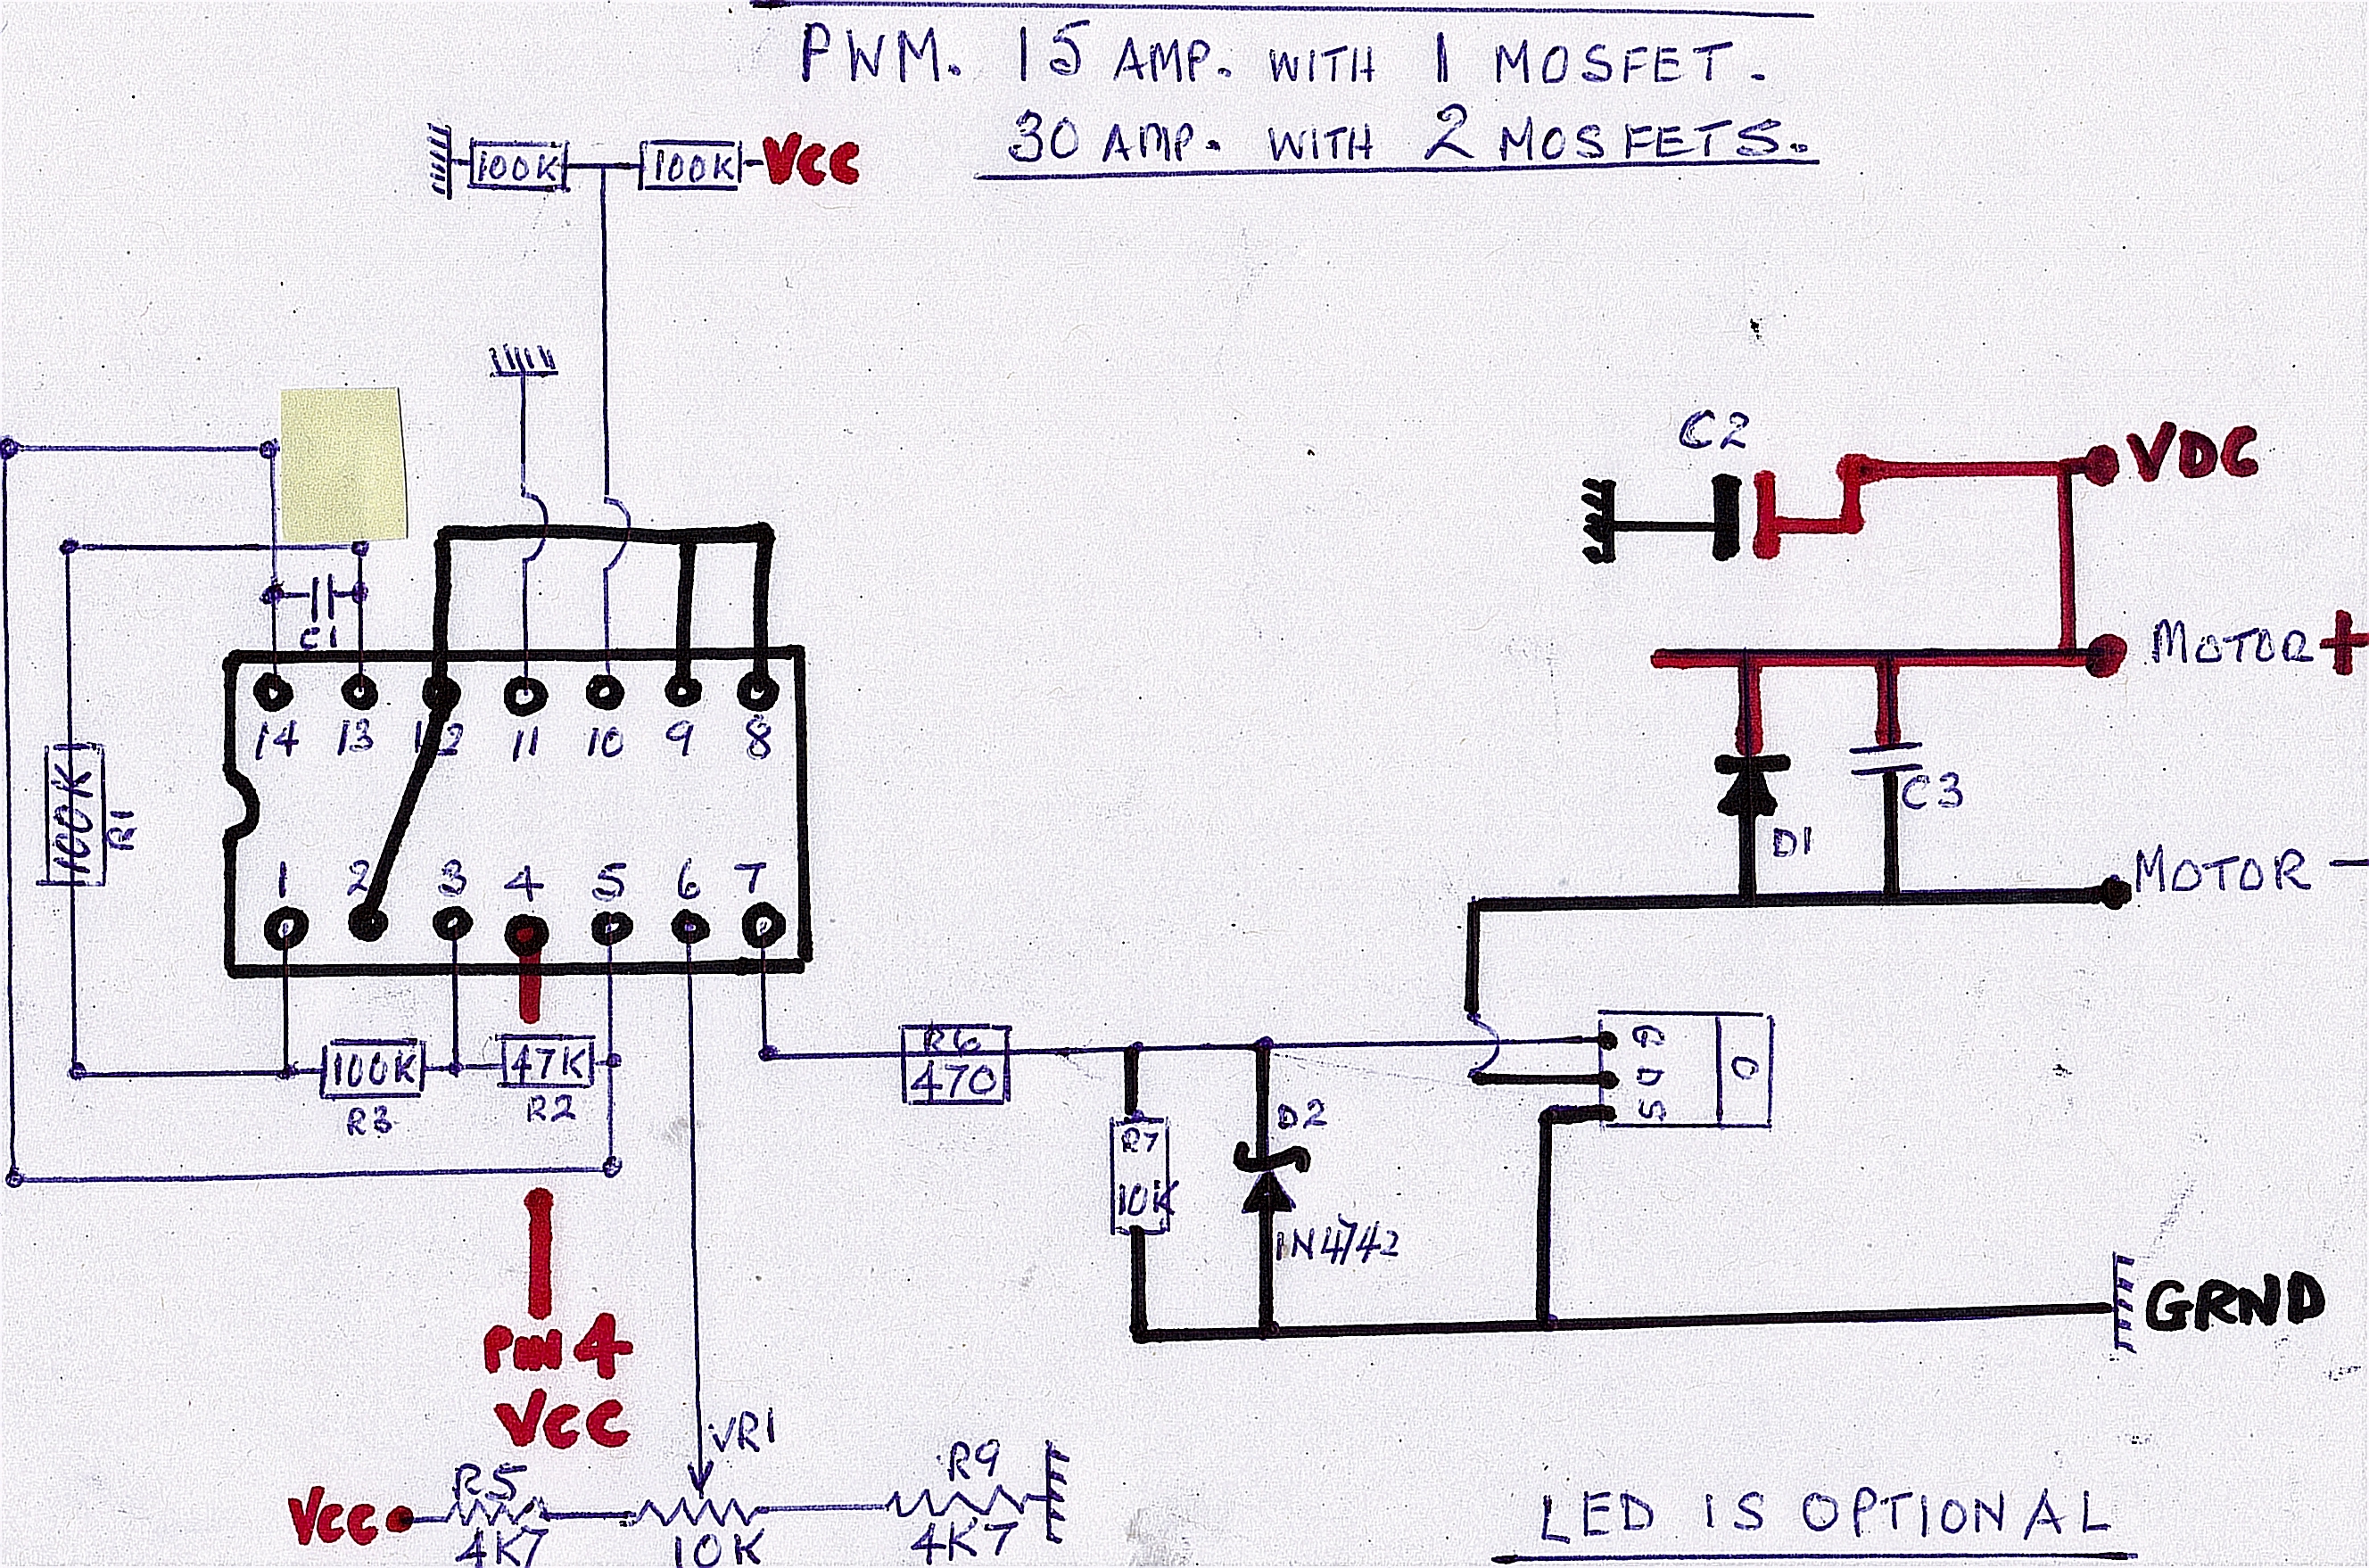 PWM. 15 AMP. WITH 1 MOSFET.
30 AMP. WITH 2 MOSFETS.
100K 100K VCC
C2
VDC
MOTOR +
C1
14 13 12 11 10 9 8
100K
R1
C3
D1
1 2 3 4 5 6 7
MOTOR -
R6
470
G
D
S
D
100K
R3
47K
R2
D2
R7
10K
1N4742
GRND
PIN 4
VCC
VR1
R5
R9
VCC
4K7
10K
4K7
LED IS OPTIONAL